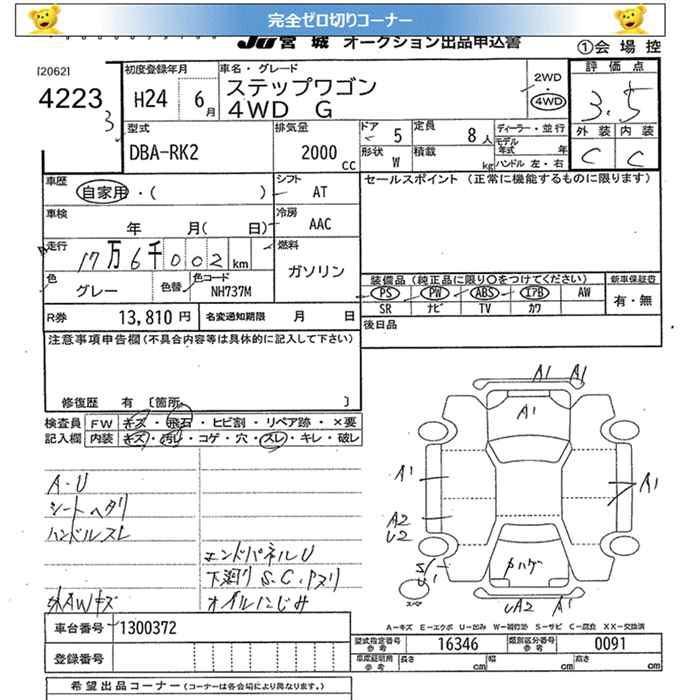 完全ゼロ切りコーナー
JU宮城 オークション出品申込書
①会場控
[2062]
4223
3
初度登録年月
H24 6月
車名・グレード
ステップワゴン
4WD G
2WD
・
4WD
評価点
3.5
型式
DBA-RK2
排気量
2000 CC
ドア 5
定員 8人
形状 W
積載 kg
ディーラー・並行
モデル年式 年
ハンドル 左・右
外装 内装
C C
車歴
自家用・( )
シフト AT
セールスポイント (正常に機能するものに限ります)
車検
年 月( 日)
冷房 AAC
走行
17万6千002km
燃料
ガソリン
色
グレー
色替
色コード
NH737M
装備品(純正品に限り○をつけてください)
新車保証書
PS PW ABS エアB AW
有・無
SR ナビ TV カワ
R券 13,810円
名変通知期限 月 日
後日品
注意事項申告欄(不具合内容等は具体的に記入して下さい)
修復歴 有 〔箇所 〕
検査員 FW キズ・飛石・ヒビ割・リペア跡・×要
記入欄 内装 キズ・汚レ・コゲ・穴・スレ・キレ・破レ
A・U
シートヘタリ
ハンドルスレ
エンドパネルU
下廻り S.C.
外AWキズ
オイルにじみ
A1 A1
A1
A1
A1
A2
U2
S
U1
ハゲ
スペア
UA2 A1
A-キズ E-エクボ U-凹み W-補修跡 S-サビ C-腐食 XX-交換済
車台番号 1300372
型式指定番号 参考 16346
類別区分番号 参考 0091
登録番号
車庫証明用 参考 長さ cm 幅 cm 高さ cm
希望出品コーナー(コーナーは各会場により異なります。)